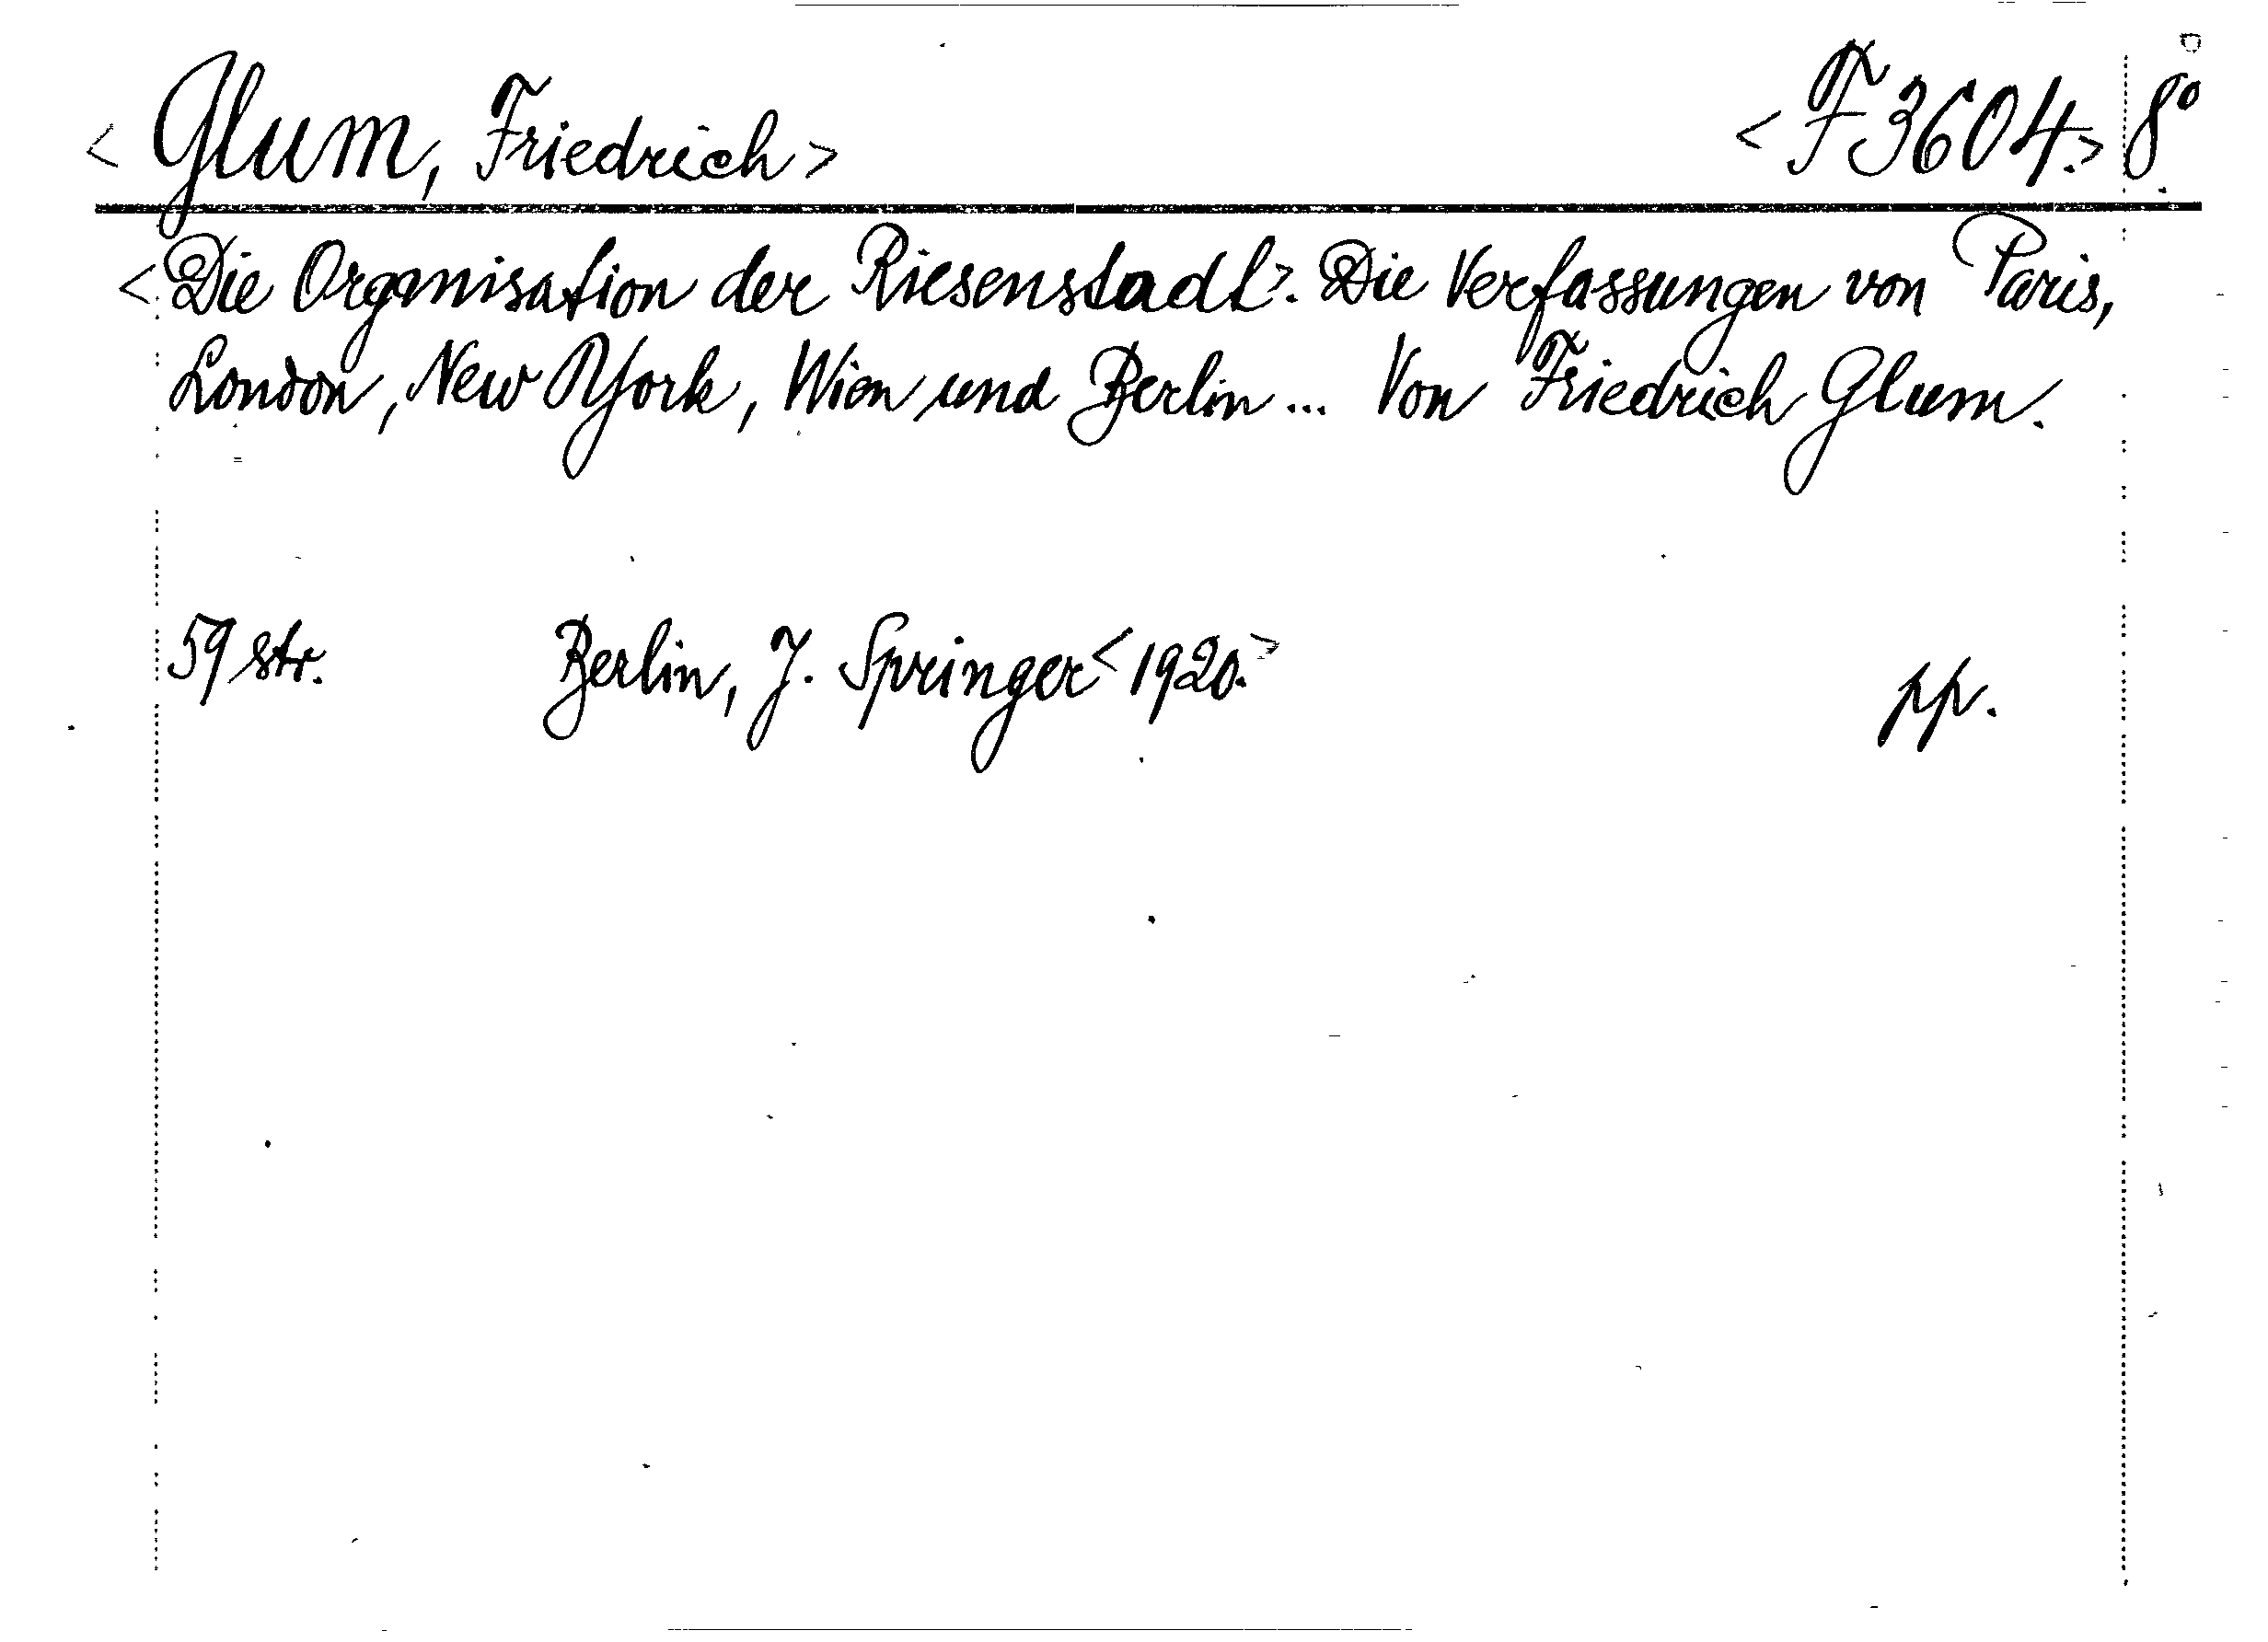 <Glum, Friedrich> <F 3604.> 8°.
<Die Organisation der Riesenstadt>. Die Verfassungen von Paris,
London, New York, Wien und Berlin... Von Friedrich Glum.
59 str. Berlin, J. Springer <1920.> pp.